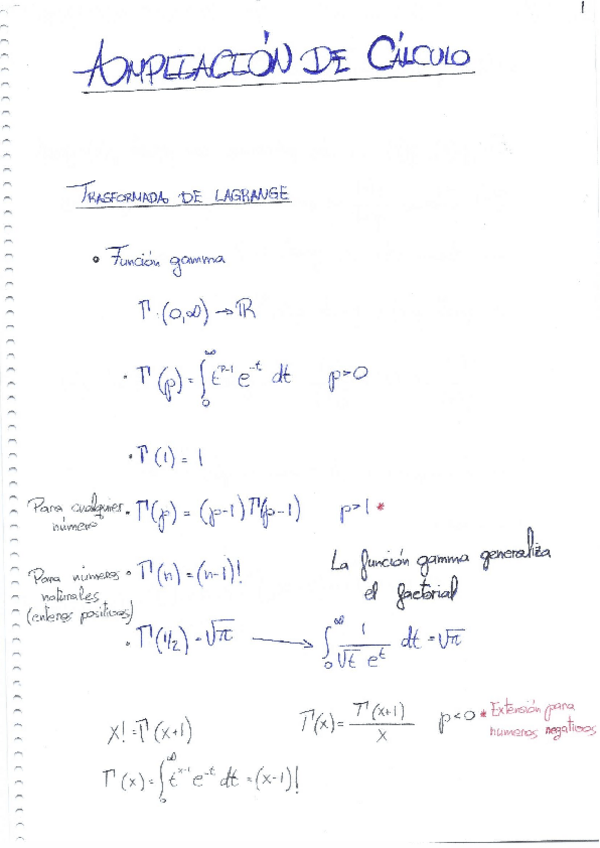 1
AMPLIACIÓN DE CÁLCULO
TRASFORMADA DE LAGRANGE
• Función gamma
Γ: (0,∞) → ℝ
· Γ(p) = ∫₀^∞ t^(p-1) e^(-t) dt    p>0
· Γ(1) = 1
Para cualquier número · Γ(p) = (p-1) Γ(p-1)    p>1 *
Para números naturales (enteros positivos) · Γ(n) = (n-1)!
La función gamma generaliza
el factorial
· Γ(1/2) = √π → ∫₀^∞ 1/(√t e^t) dt = √π
x! = Γ(x+1)
Γ(x) = Γ(x+1)/x    p<0 * Extensión para números negativos
Γ(x) = ∫₀^∞ t^(x-1) e^(-t) dt = (x-1)!